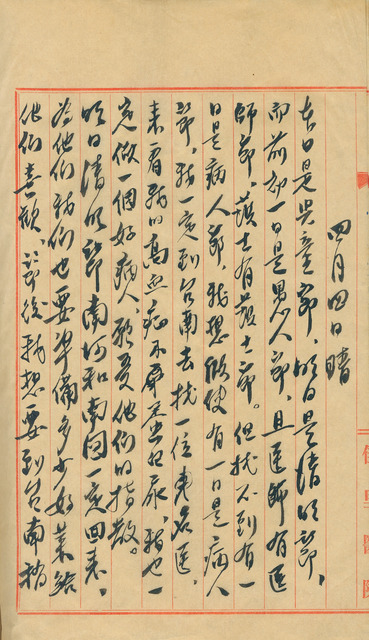 四月四日晴
本日是兒童節，明日是清明節，
而前卻一日是男人節，且醫師有醫
師節護士有護士節。但找不到有一
日是病人節，我想假使有一日是病人
節，我一定到台南去找一位老名医，
来一看我的高血症和尿蛋白尿，我也一
定做一個好病人，願受他們的指教。
明日清明節南河和南园一定回来，
为他們我們也要準備多少好菜給
他們喜歡、節後我想要到台南稍